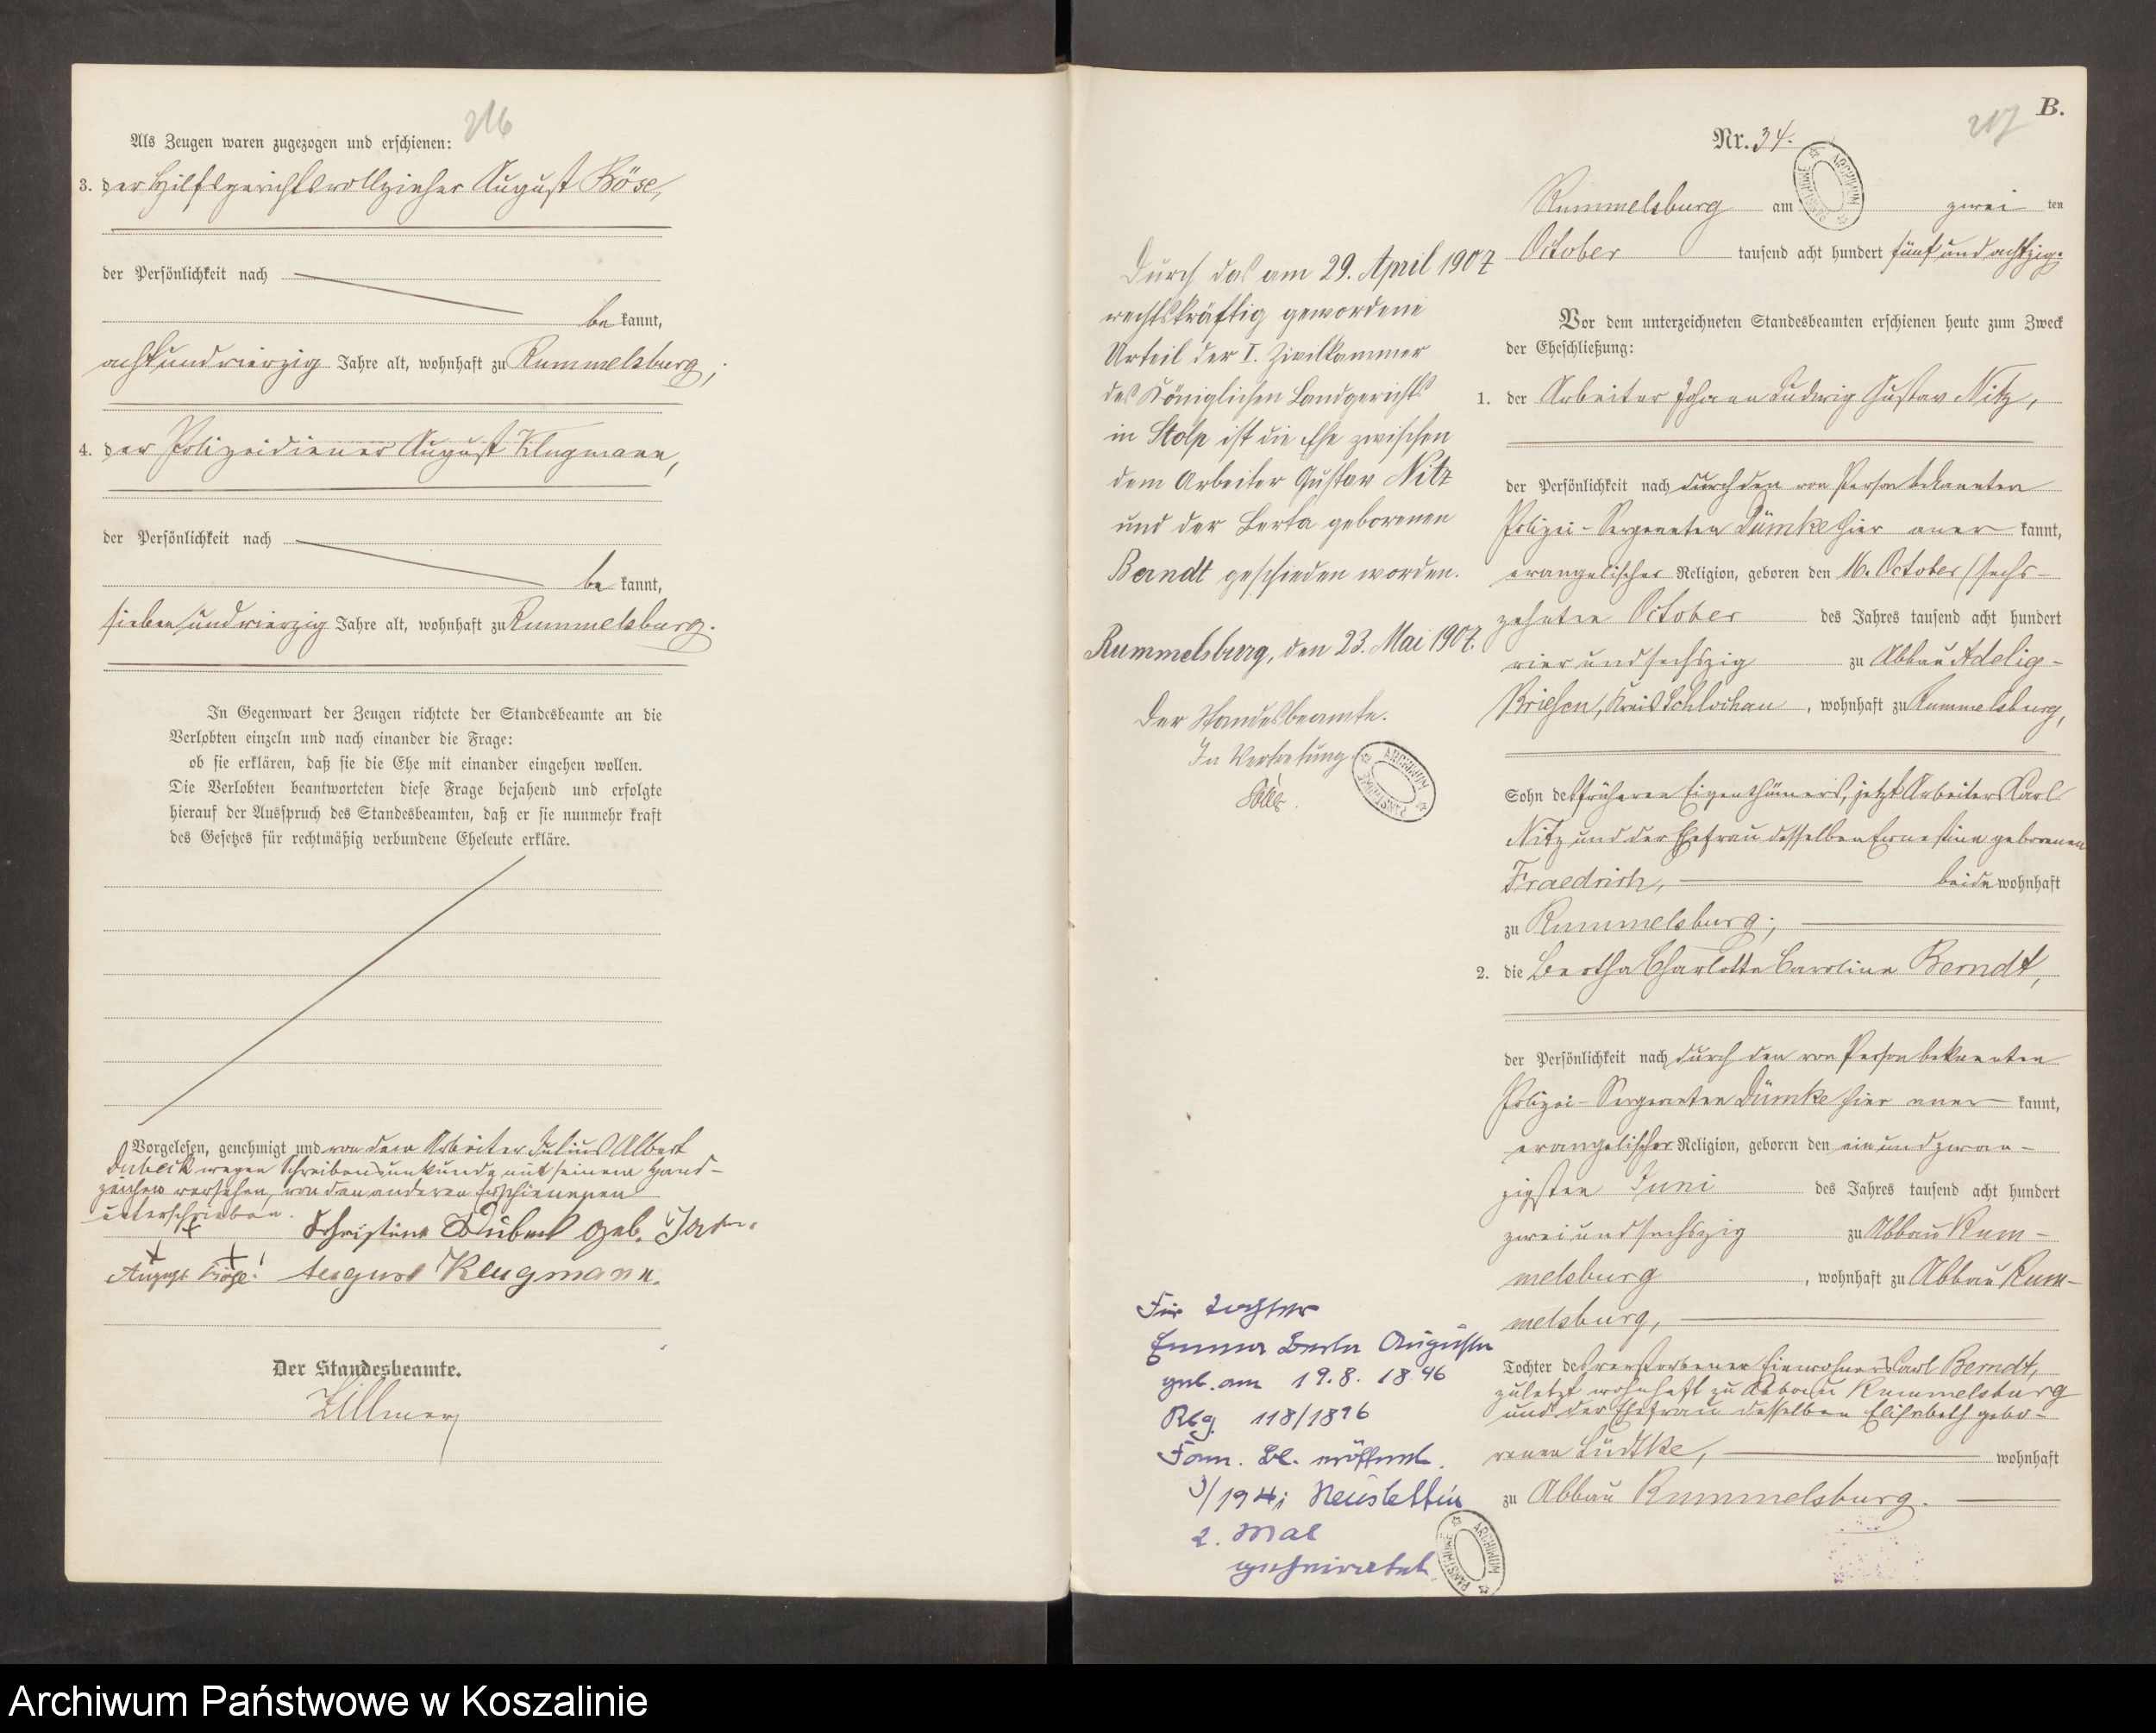 216
Als Zeugen waren zugezogen und erschienen:
3. der Hilfsgerichtsvollzieher August Böse,
der Persönlichkeit nach
be kannt,
achtundvierzig Jahre alt, wohnhaft zu Rummelsburg;
4. der Polizeidiener August Klugmann,
der Persönlichkeit nach
be kannt,
siebenundvierzig Jahre alt, wohnhaft zu Rummelsburg.
In Gegenwart der Zeugen richtete der Standesbeamte an die
Verlobten einzeln und nach einander die Frage:
ob sie erklären, daß sie die Ehe mit einander eingehen wollen.
Die Verlobten beantworteten diese Frage bejahend und erfolgte
hierauf der Ausspruch des Standesbeamten, daß er sie nunmehr kraft
des Gesetzes für rechtmäßig verbundene Eheleute erkläre.
Vorgelesen, genehmigt und von dem Arbeiter Julius Albert
Dubeck wegen Schreibensunkunde mit seinem Hand-
zeichen versehen, von den anderen Erschienenen
unterschrieben.
+ + +
Christine Dubeck geb.
August Böse. August Klugmann.
Der Standesbeamte.
Zillmer
B.
217
Nr. 34.
Rummelsburg am zwei ten
October tausend acht hundert fünf und achtzig.
Vor dem unterzeichneten Standesbeamten erschienen heute zum Zweck
der Eheschließung:
1. der Arbeiter Johann Ludwig Gustav Nitz,
der Persönlichkeit nach durch den von Person bekannten
Polizei-Sergeanten Dümke hier aner kannt,
evangelischer Religion, geboren den 16. October (sechs-
zehnten October des Jahres tausend acht hundert
vier und sechszig zu Abbau Adelig-
Briesen, Kreis Schlochau, wohnhaft zu Rummelsburg,
Sohn des früheren Eigenthümers, jetzt Arbeiters Carl
Nitz und der Ehefrau desselben Ernestine geborenen
Fraedrich, beide wohnhaft
zu Rummelsburg;
2. die Bertha Charlotte Caroline Berndt,
der Persönlichkeit nach durch den von Person bekannten
Polizei-Sergeanten Dümke hier aner kannt,
evangelischer Religion, geboren den ein und zwan-
zigsten Juni des Jahres tausend acht hundert
zwei und sechszig zu Abbau Rum-
melsburg, wohnhaft zu Abbau Rum-
melsburg,
Tochter des verstorbenen Einwohners Carl Berndt,
zuletzt wohnhaft zu Abbau Rummelsburg
und der Ehefrau desselben Elisabeth gebo-
renen Lüdtke, wohnhaft
zu Abbau Rummelsburg.
Durch das am 29. April 1907
rechtskräftig gewordene
Urteil der I. Zivilkammer
des Königlichen Landgerichts
in Stolp ist die Ehe zwischen
dem Arbeiter Gustav Nitz
und der Berta geborenen
Berndt geschieden worden.
Rummelsburg, den 23. Mai 1907.
Der Standesbeamte.
In Vertretung
Für Tochter
Emma Berta Auguste
geb. am 19.8.1896
Reg. 118/1896
Fam. Bl. eröffnet.
Neustettin
2. Mal
geheiratet
ARCHIWUM PAŃSTWOWE
ARCHIWUM PAŃSTWOWE
ARCHIWUM PAŃSTWOWE
Archiwum Państwowe w Koszalinie